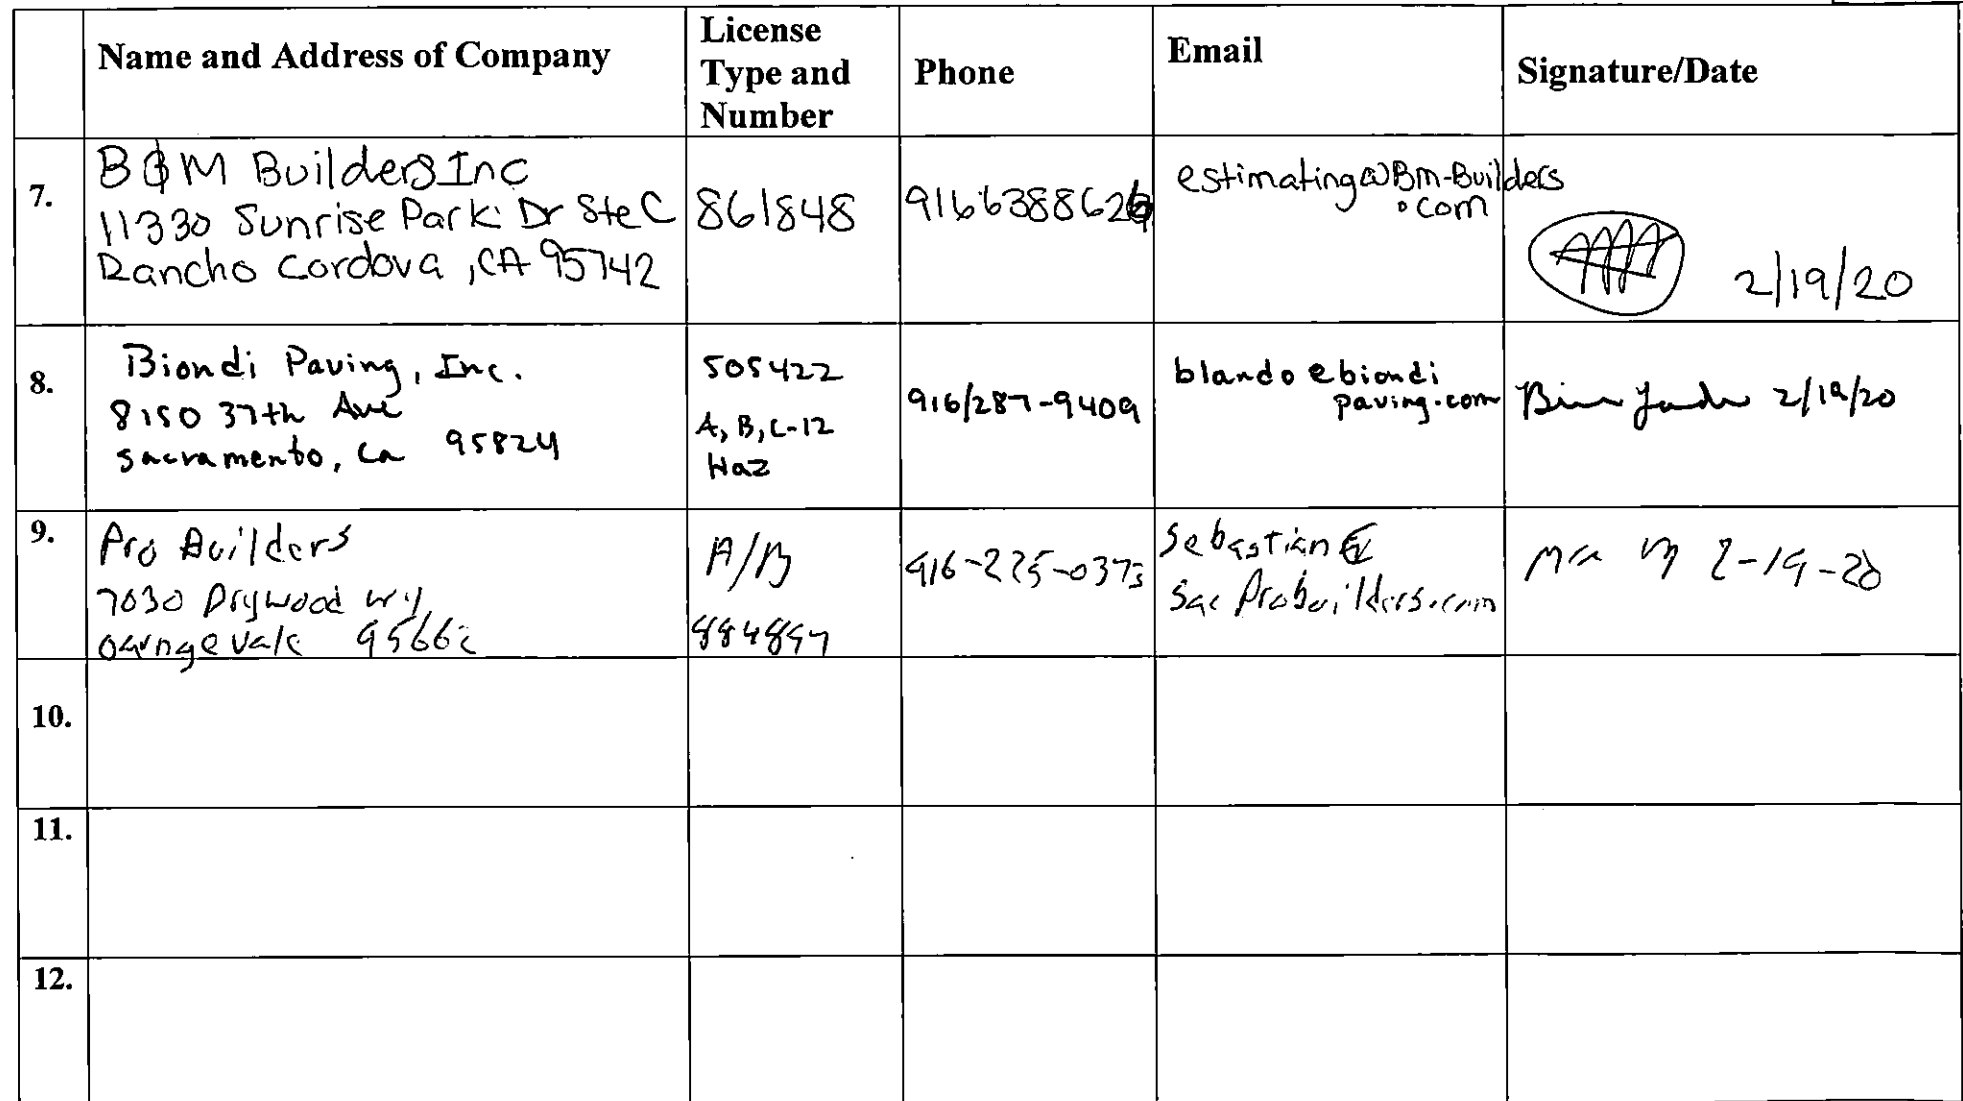 Name and Address of Company
License
Type and
Number
Phone
Email
Signature/Date
7.
B&M Builders Inc
11330 Sunrise Park Dr Ste C
Rancho Cordova, CA 95742
861848
9166388626
estimating@Bm-Builders
.com
2/19/20
8.
Biondi Paving, Inc.
8150 37th Ave
Sacramento, Ca 95824
505422
A, B, C-12
Haz
916/287-9409
blando@biondi
paving.com
2/19/20
9.
Pro Builders
7030 Drywood Wy
A/B
916-225-0373
Sebastian@
SacProbuilders.com
2-19-20
10.
11.
12.